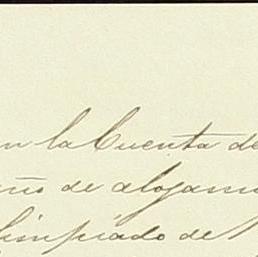 en la Cuenta de
de alojami
Limpiado de